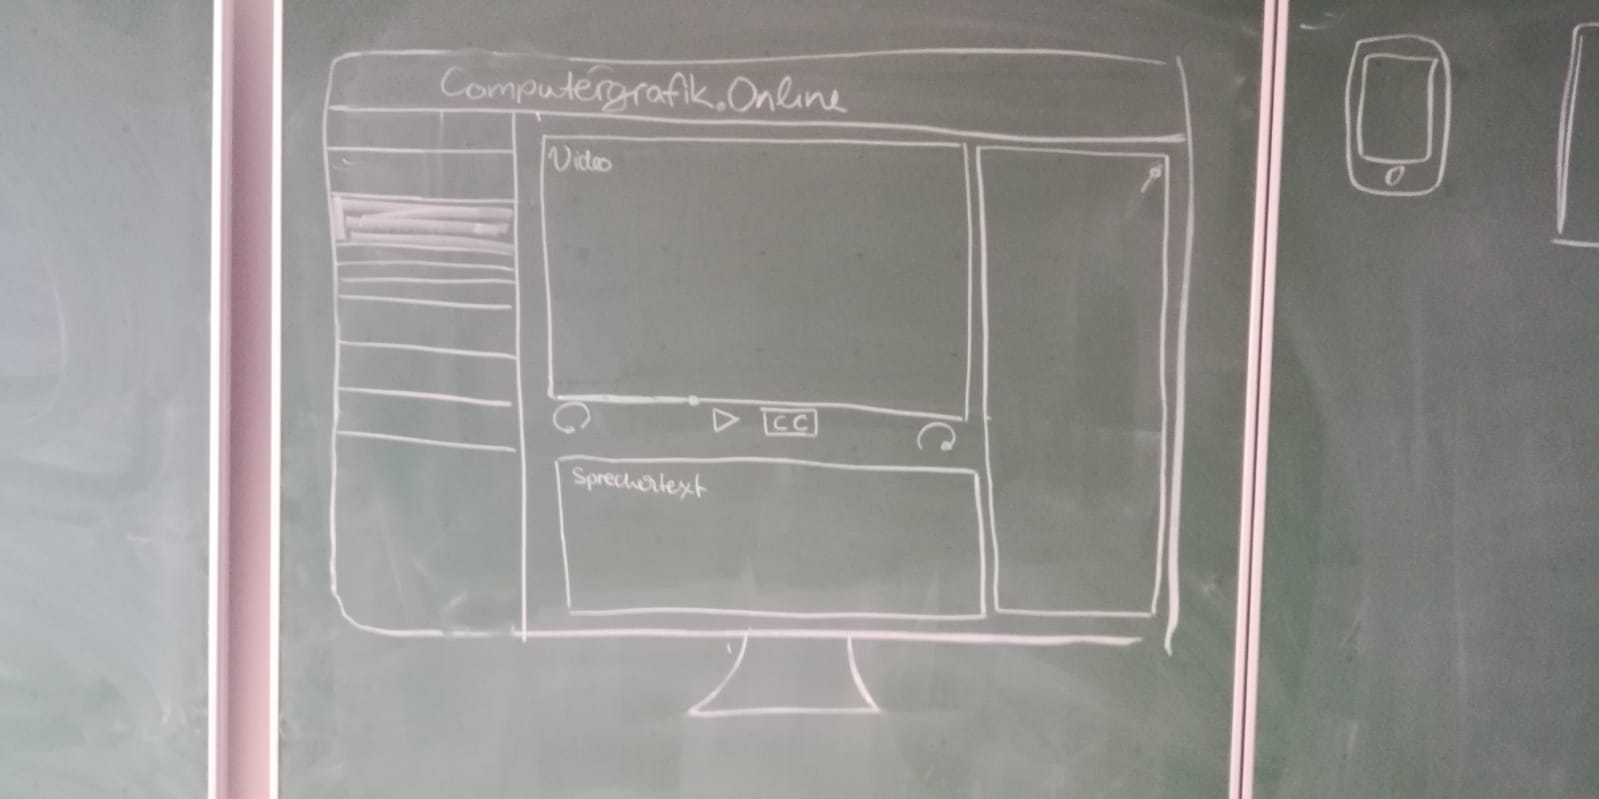 Computergrafik.Online
Video
CC
Sprechertext